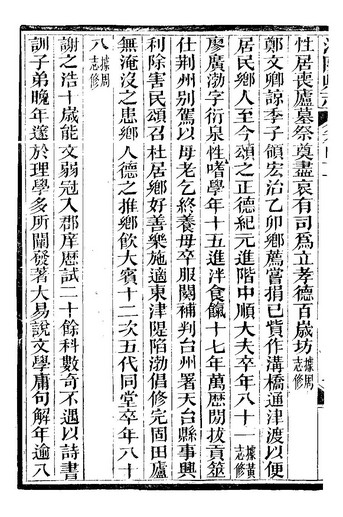 性居喪廬墓祭奠盡哀有司爲立孝德百歲坊據周志修
鄭文卿諒季子領宏治乙卯鄉薦嘗捐已貲作溝橋通津渡以便
居民鄉人至今頌之正德紀元進階中順大夫卒年八十一據黃志修
廖廣渤字衍泉性嗜學年十五進泮食餼十七年萬歷閒拔貢筮
仕荆州别駕以母老乞終養母卒服闋補判台州署天台縣事興
利除害民頌召杜居鄉好善樂施適東津隄陷渤倡修完固田廬
無淹沒之患鄉人德之推鄉飲大賓十二次五代同堂卒年八十
八據周志修
謝之浩十歲能文弱冠入郡庠歷試二十餘科數奇不遇以詩書
訓子弟晚年邃於理學多所闡發著大易說文學庸句解年逾八